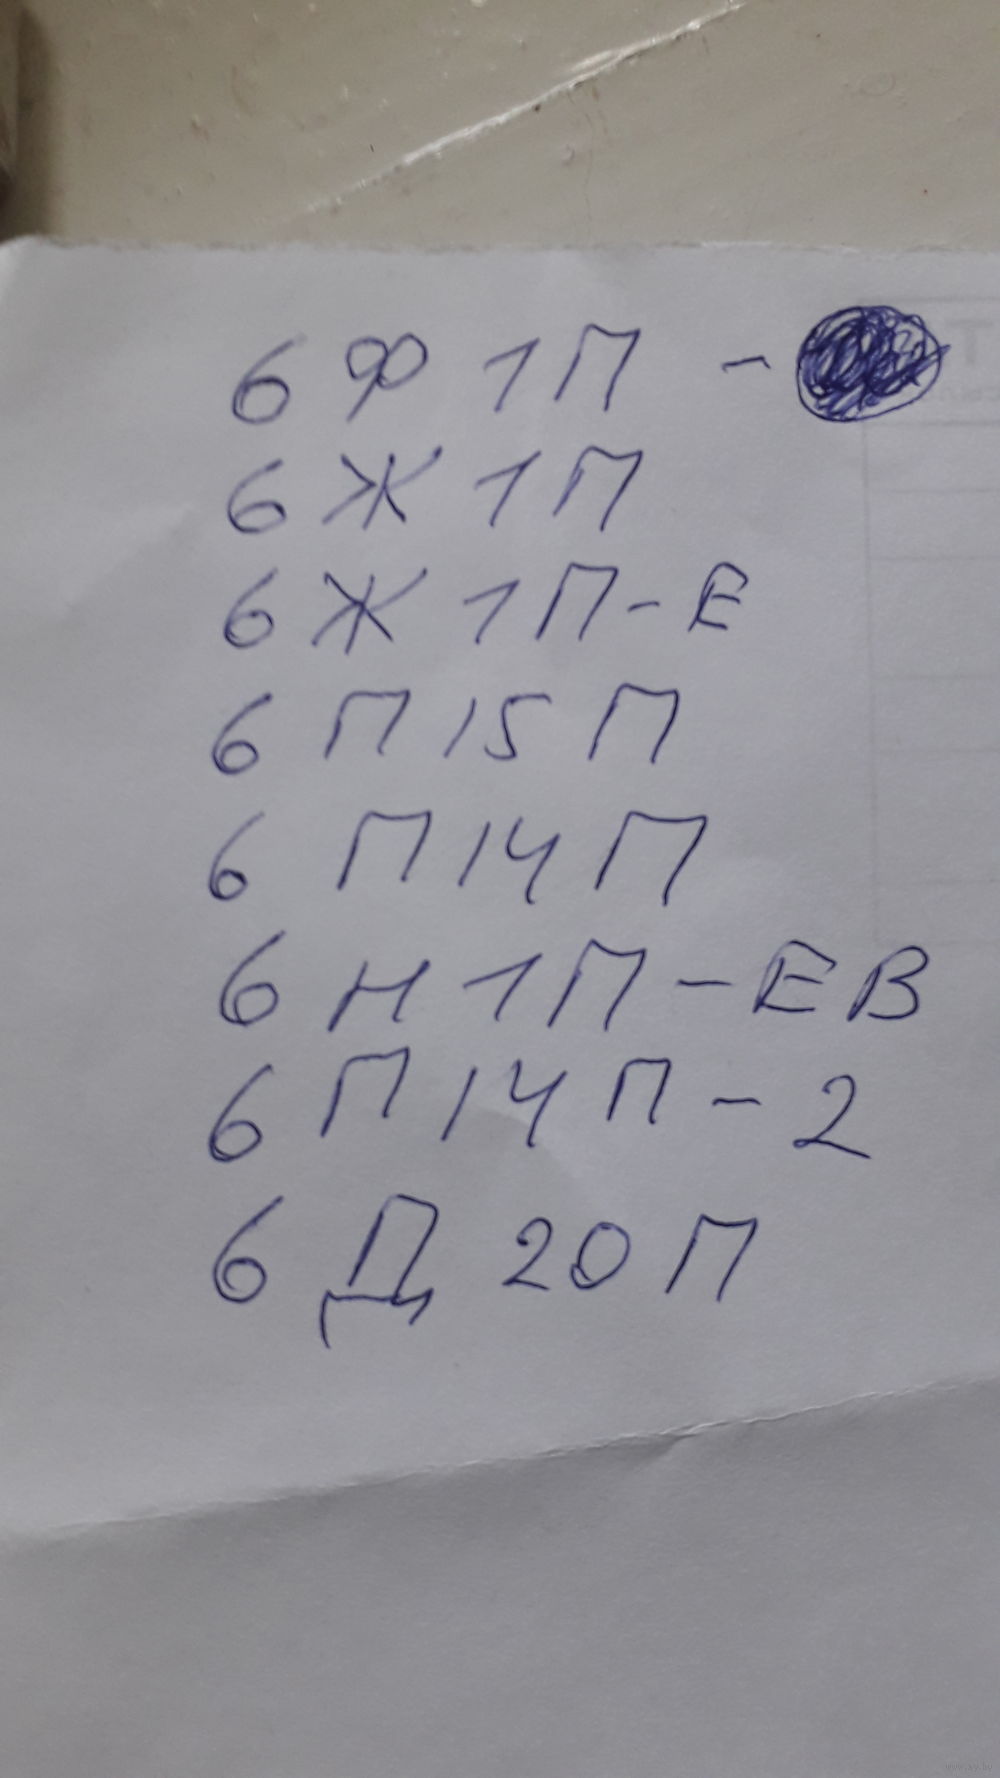 6Ф1П -
6Ж1П
6Ж1П-Е
6П15П
6П14П
6Н1П-ЕВ
6П14П-2
6Д20П